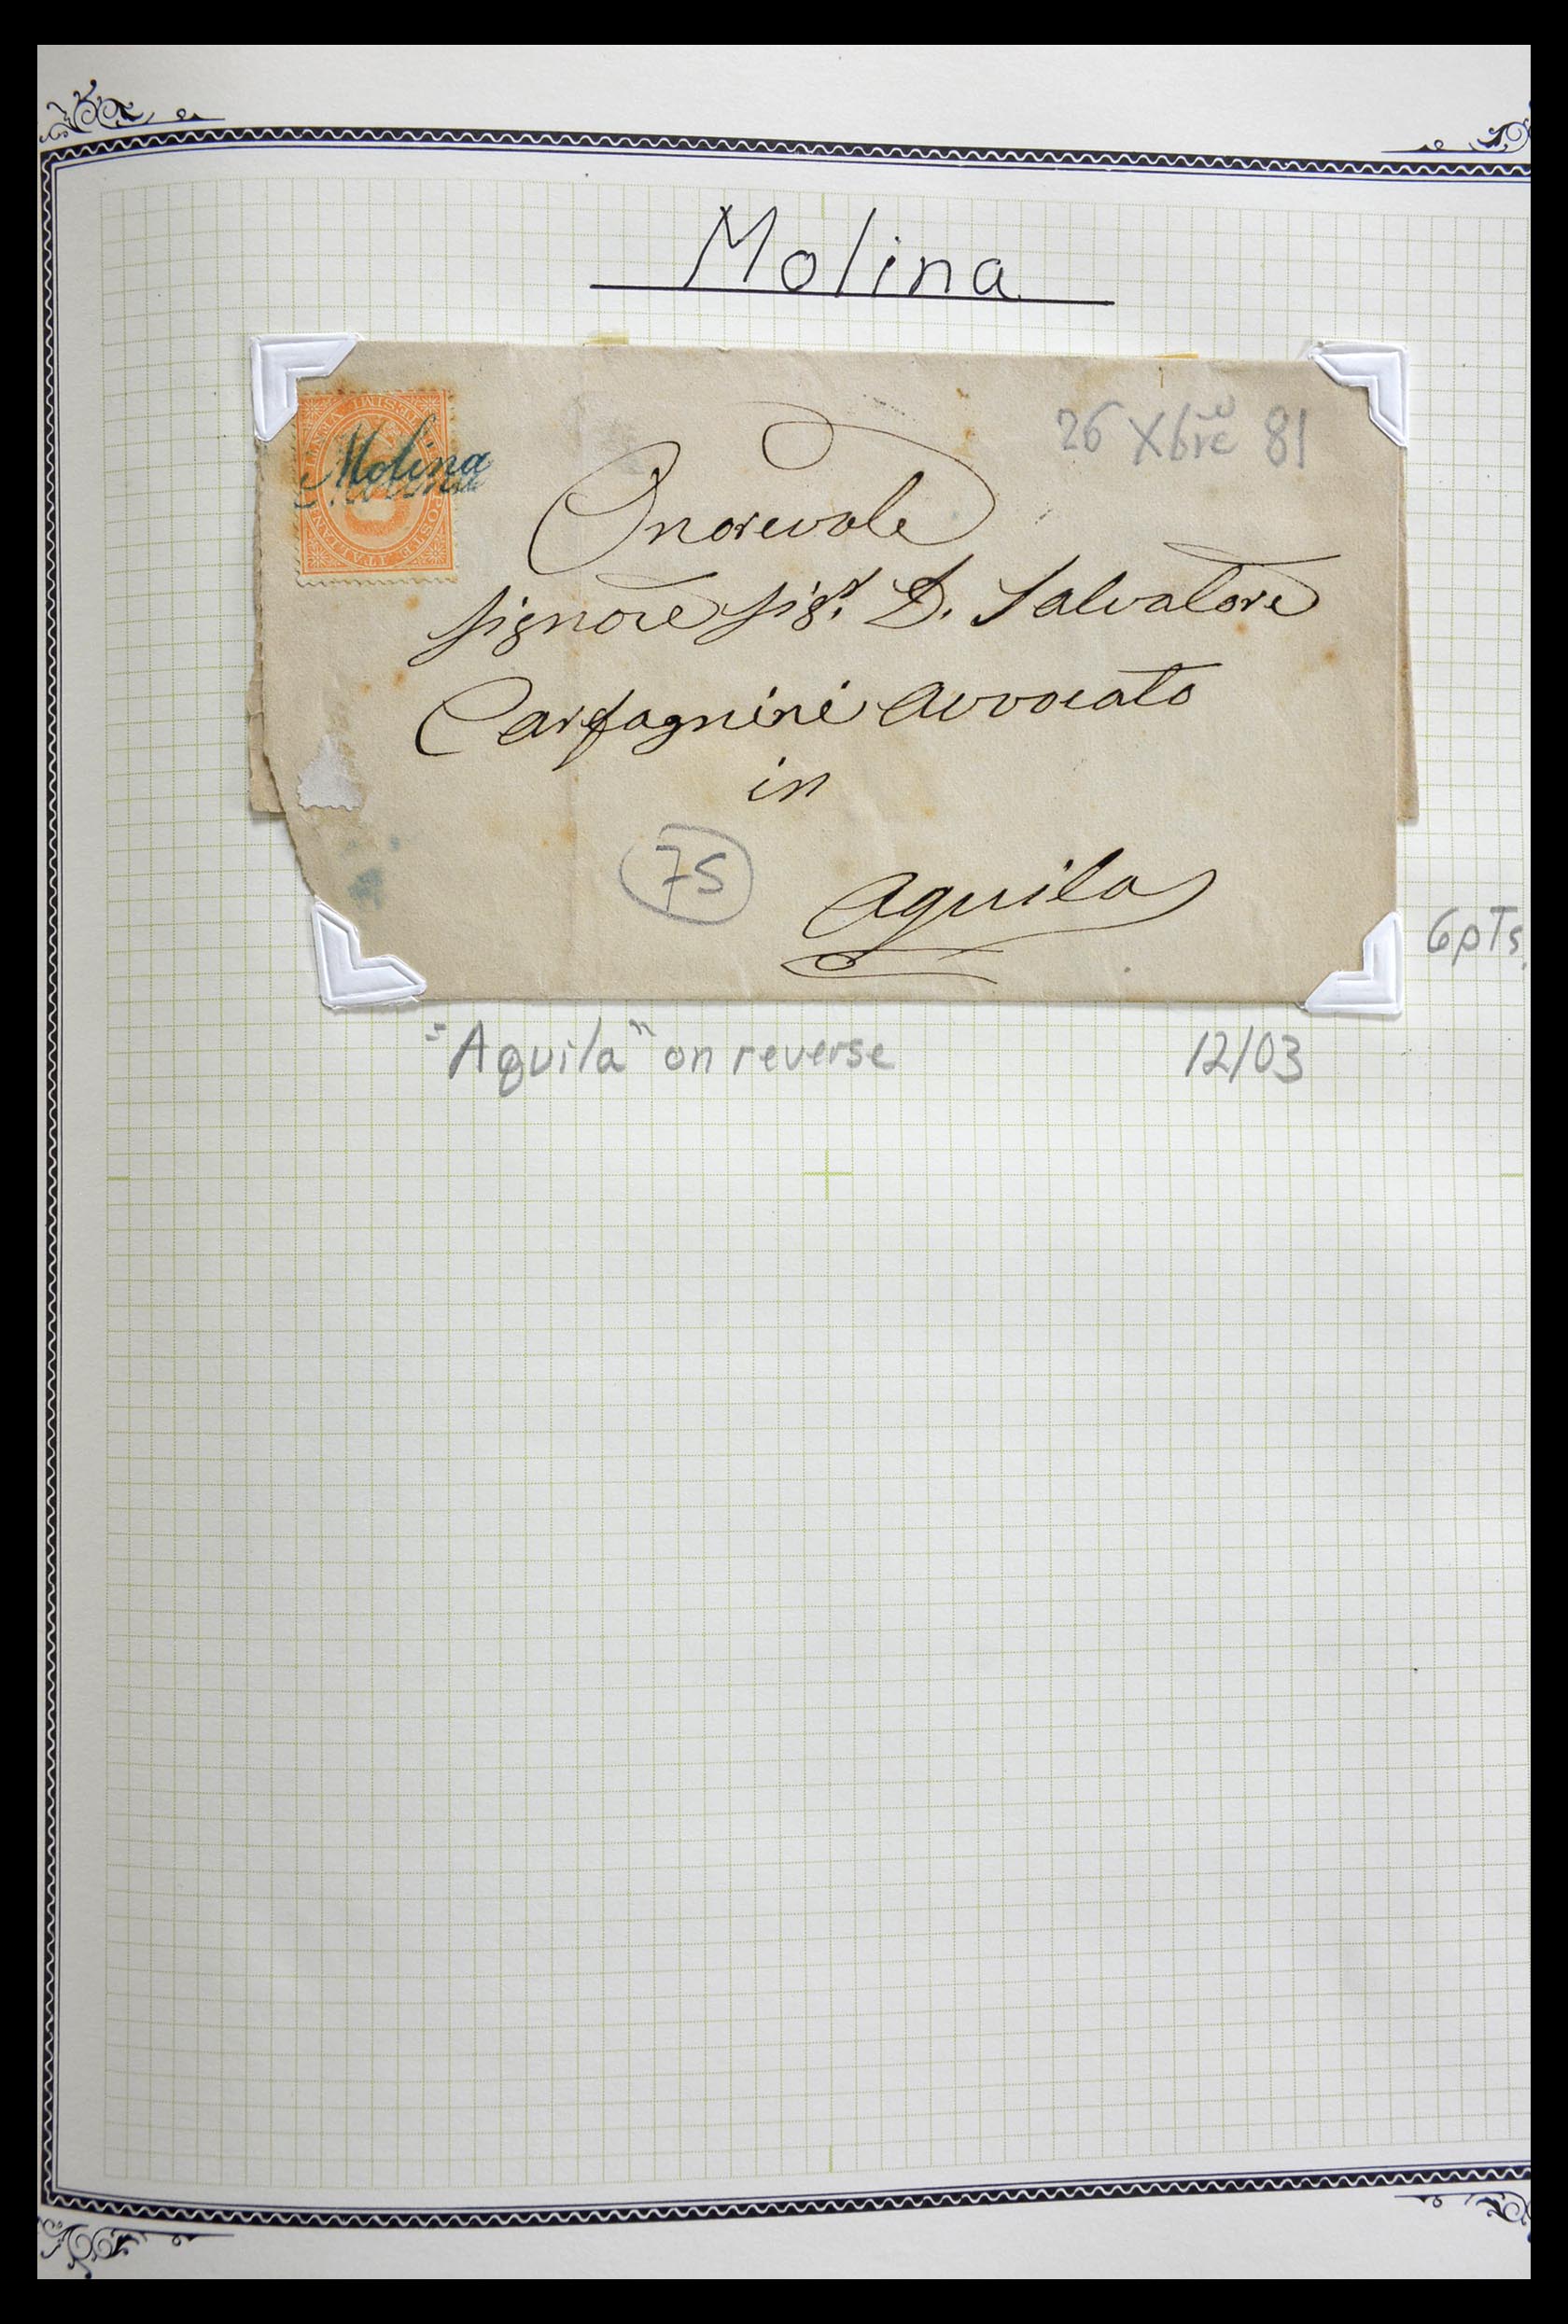 Molina
26 Xbre 81
Molina
POSTE ITALIANE
Onorevole
Signore Sig.r D. Salvatore
Carfagnini Avvocato
in
75
Aquila
6pTs.
"Aquila" on reverse
12/03